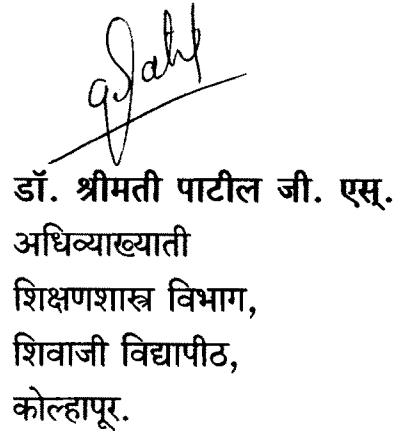 डॉ. श्रीमती पाटील जी. एस्.
अधिव्याख्याती
शिक्षणशास्त्र विभाग,
शिवाजी विद्यापीठ,
कोल्हापूर.